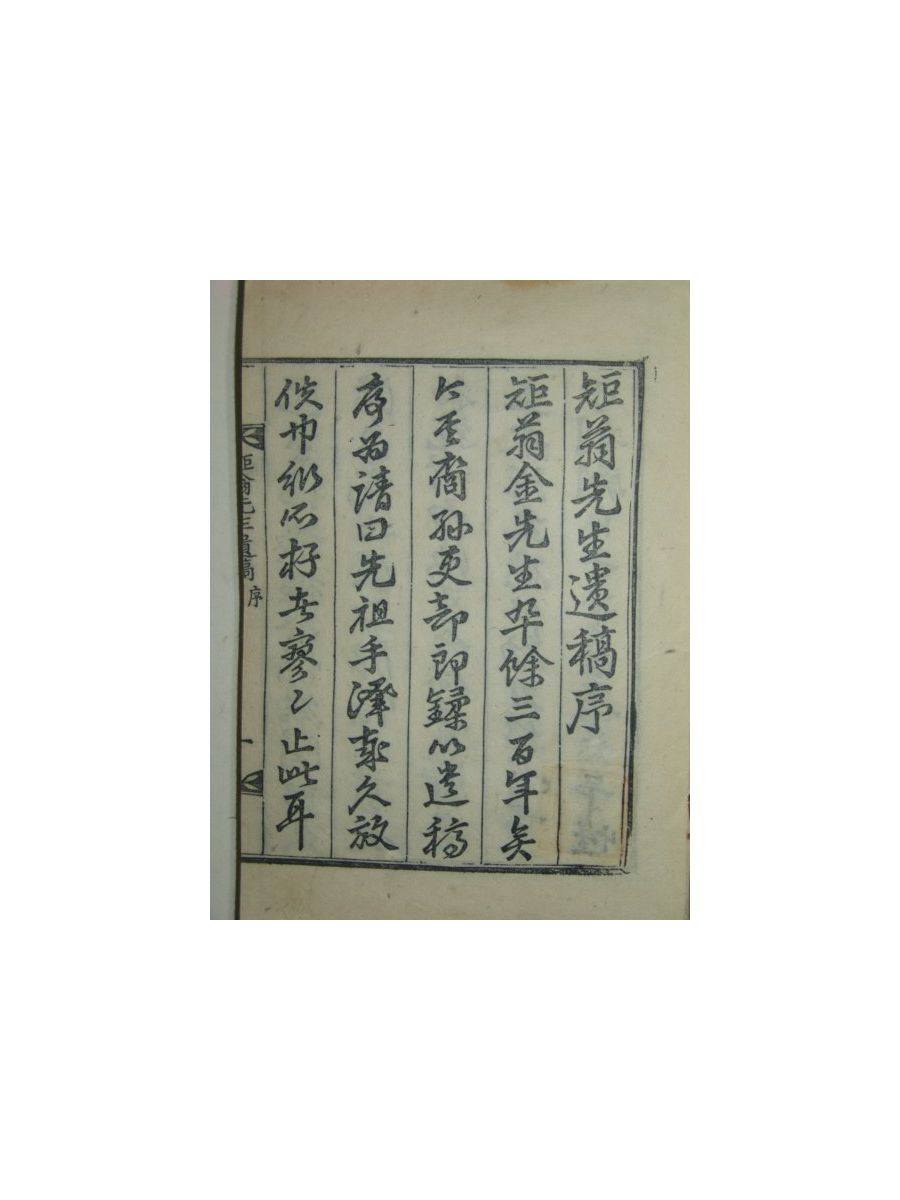 矩翁先生遺稿序
矩翁金先生卒餘三百年矣
今其裔孫吏部郎鑐以遺稿
序为請曰先祖手澤歲久放
佚巾衍所存者寥〻止此耳
矩翁先生遺稿 序 一